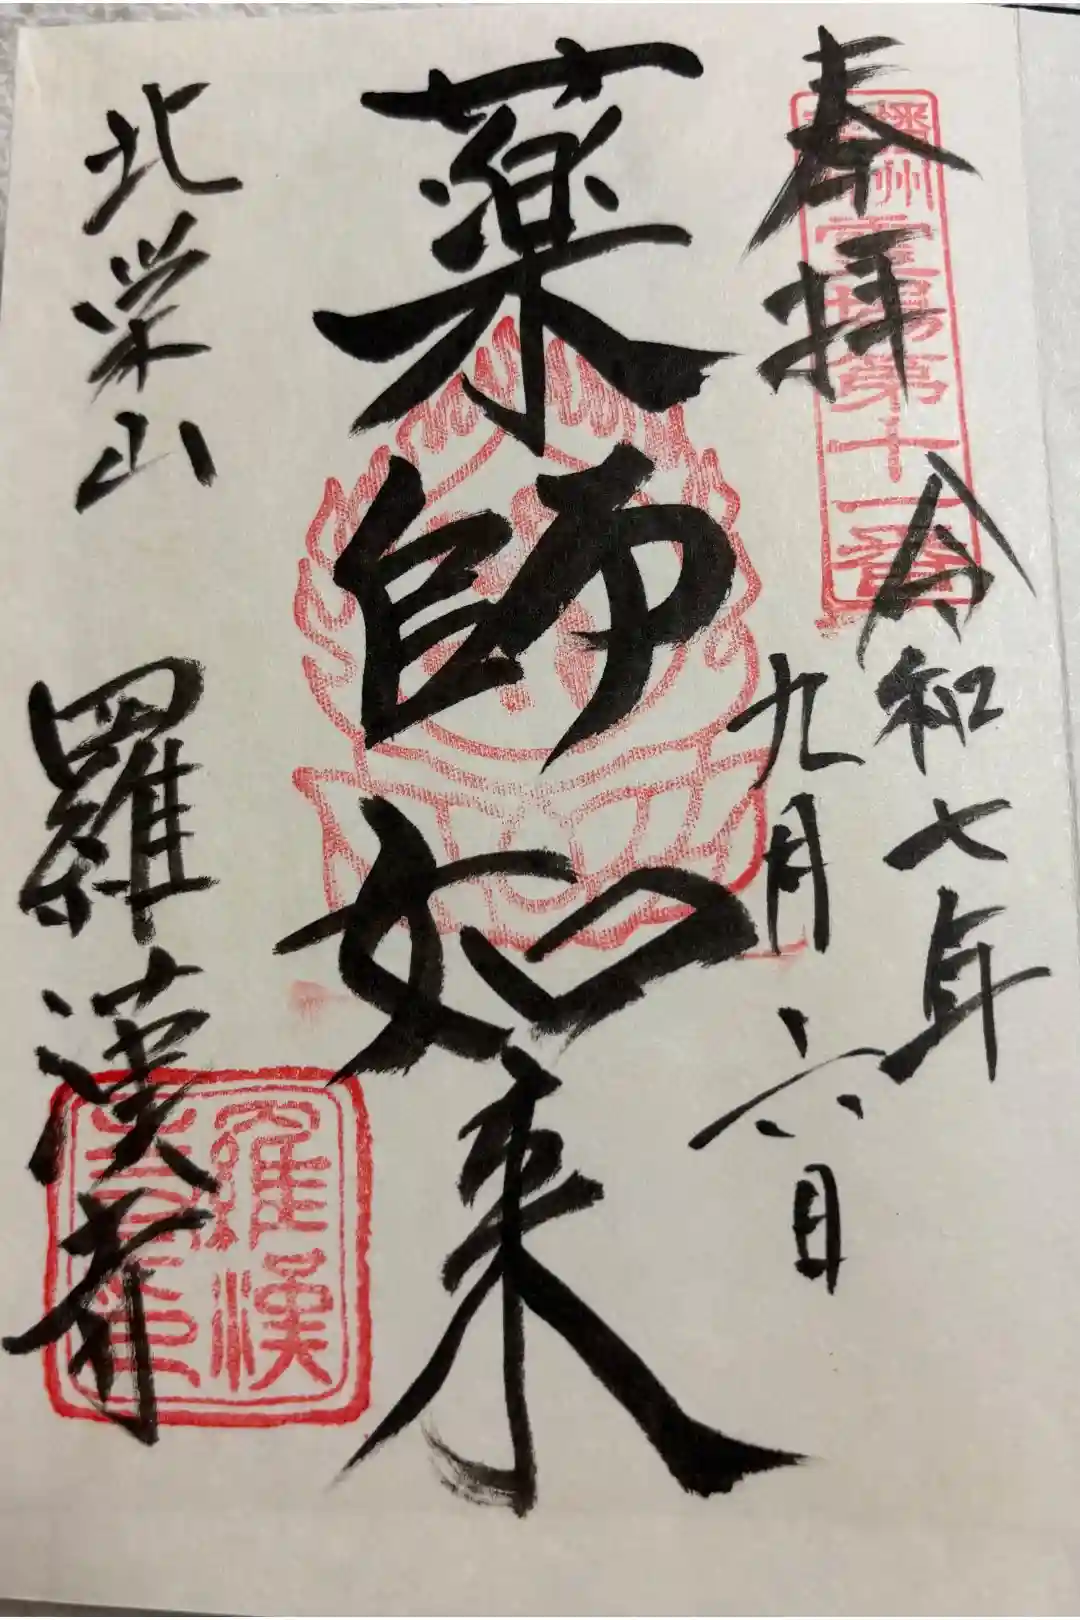 奉拝
播州霊場第十一番
令和七年
九月六日
薬師如来
北栄山
羅漢寺
羅漢
寺印